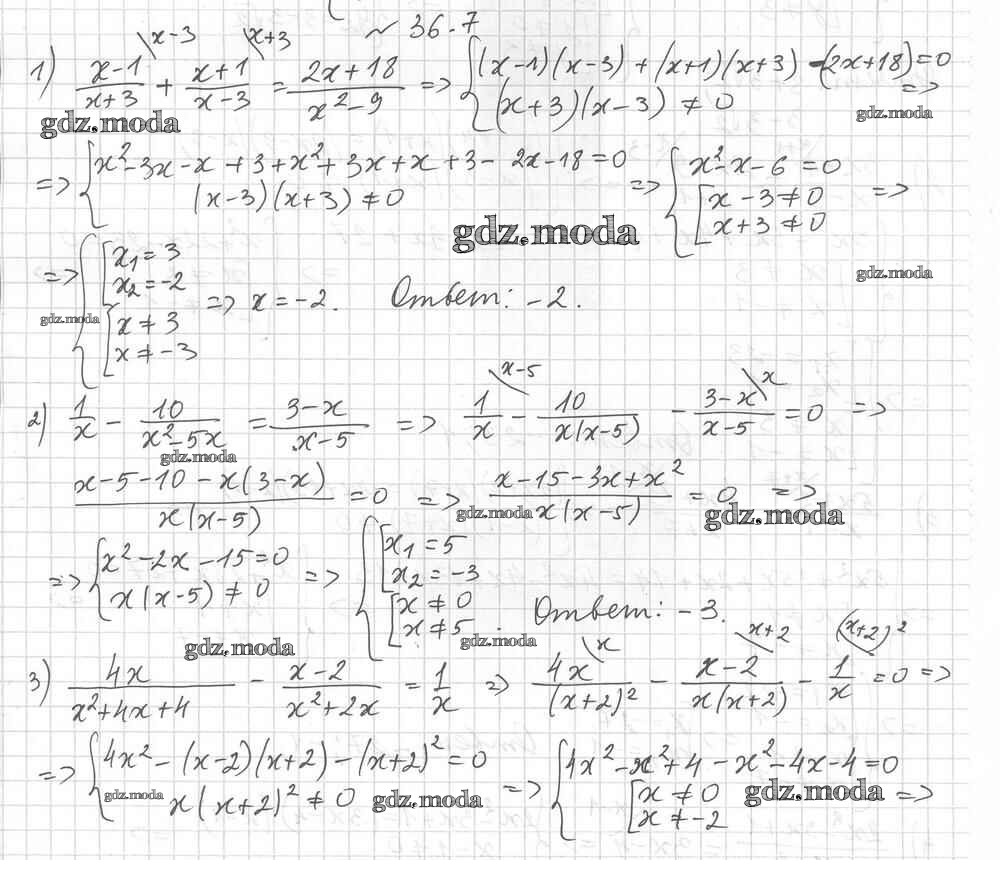 ~ 36.7
x-3 x+3
1) (x-1)/(x+3) + (x+1)/(x-3) = (2x+18)/(x²-9) => { (x-1)(x-3) + (x+1)(x+3) - (2x+18) = 0
(x+3)(x-3) ≠ 0 =>
gdz.moda gdz.moda
=> { x²-3x-x+3+x²+3x+x+3- 2x-18=0
(x-3)(x+3) ≠ 0 => { x²-x-6=0
[ x-3≠0
x+3≠0 =>
gdz.moda
gdz.moda
=> { [ x₁=3
x₂=-2
[ x≠3
x≠-3 => x=-2. Ответ: -2.
gdz.moda
x-5 x
2) 1/x - 10/(x²-5x) = (3-x)/(x-5) => 1/x - 10/(x(x-5)) - (3-x)/(x-5) = 0 =>
gdz.moda
(x-5-10-x(3-x))/(x(x-5)) = 0 => (x-15-3x+x²)/(x(x-5)) = 0 =>
gdz.moda gdz.moda
=> { x²-2x-15=0
x(x-5)≠0 => { [ x₁=5
x₂=-3
[ x≠0
x≠5. Ответ: -3.
gdz.moda gdz.moda
x x+2 (x+2)²
3) 4x/(x²+4x+4) - (x-2)/(x²+2x) = 1/x => 4x/(x+2)² - (x-2)/(x(x+2)) - 1/x = 0 =>
=> { 4x²-(x-2)(x+2)-(x+2)²=0
x(x+2)²≠0 => { 4x²-x²+4-x²-4x-4=0
[ x≠0
x≠-2 =>
gdz.moda gdz.moda gdz.moda